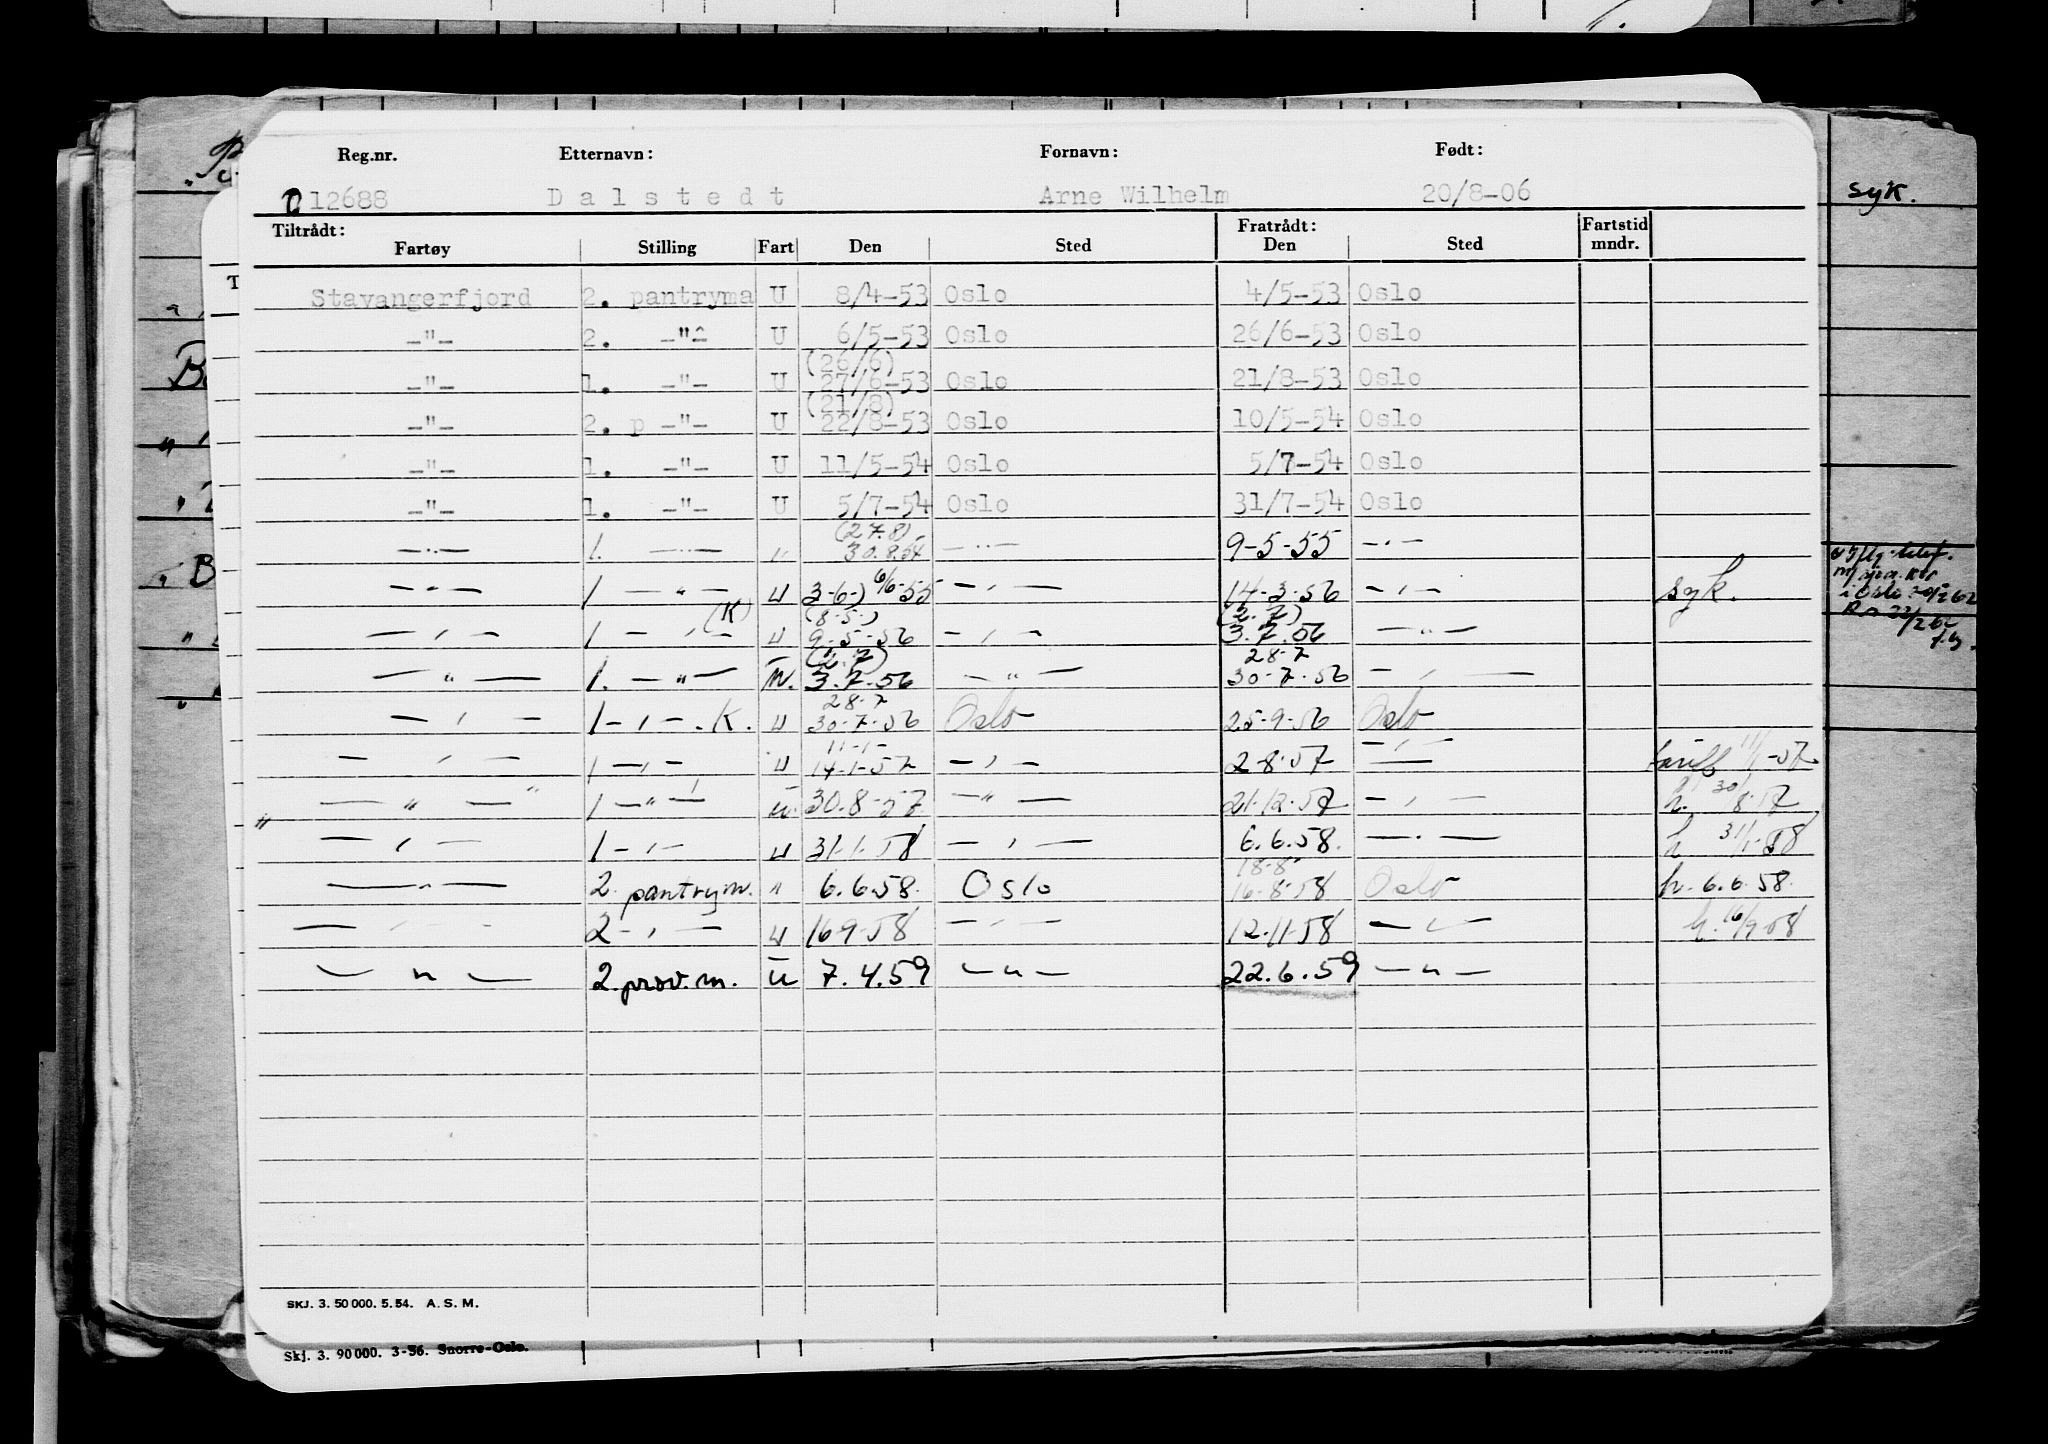 Reg.nr. Etternavn: Fornavn: Født:
12688 Dalstedt Arne Wilhelm 20/8-06
syk.
Tiltrådt: Fratrådt: Fartstid
Fartøy Stilling Fart Den Sted Den Sted mndr.
Stavangerfjord 2. pantryma U 8/4-53 Oslo 4/5-53 Oslo
-"- 2. -"- U 6/5-53 Oslo 26/6-53 Oslo
(26/6)
-"- 1. -"- U 27/6-53 Oslo 21/8-53 Oslo
(21/8)
-"- 2. p -"- U 22/8-53 Oslo 10/5-54 Oslo
-"- 1. -"- U 11/5-54 Oslo 5/7-54 Oslo
-"- 1. -"- U 5/7-54 Oslo 31/7-54 Oslo
(27.8)
-"- 1. -"- " 30.8.54 -"- 9-5-55 -"-
-"- 1 -"- U 3-6-) 6/6-55 -"- 14-3-56 -"- syk.
(K) (8-5-) (2.7)
-"- 1 -"- U 9-5-56 -"- 3.7.56 -"-
(2.7) 28-7
-"- 1. -"- U. 3.7.56 -"- 30-7-56 -"-
28-7
-"- 1-"-.K. U 30-7-56 Oslo 25-9-56 Oslo
11-1-
-"- 1-"- U 14-1-57 -"- 2-8-57 -"- 11/1-57
-"- 1-"- U. 30.8-57 -"- 21-12-57 -"- h. 30/8-57
-"- 1-"- U 31-1-58 -"- 6.6.58. -"- h 31/1-58
18-8-
-"- 2. pantrym. " 6.6.58. Oslo 16-8-58 Oslo h. 6.6.58.
-"- 2-"- U 16-9-58 -"- 12-11-58 -"- h. 16/9-58
-"- 2. prov.m. U 7.4.59 -"- 22.6.59 -"-
SKJ. 3. 50 000. 5. 54. A. S. M.
Skj. 3. 90 000. 3-56. Snorre-Oslo.